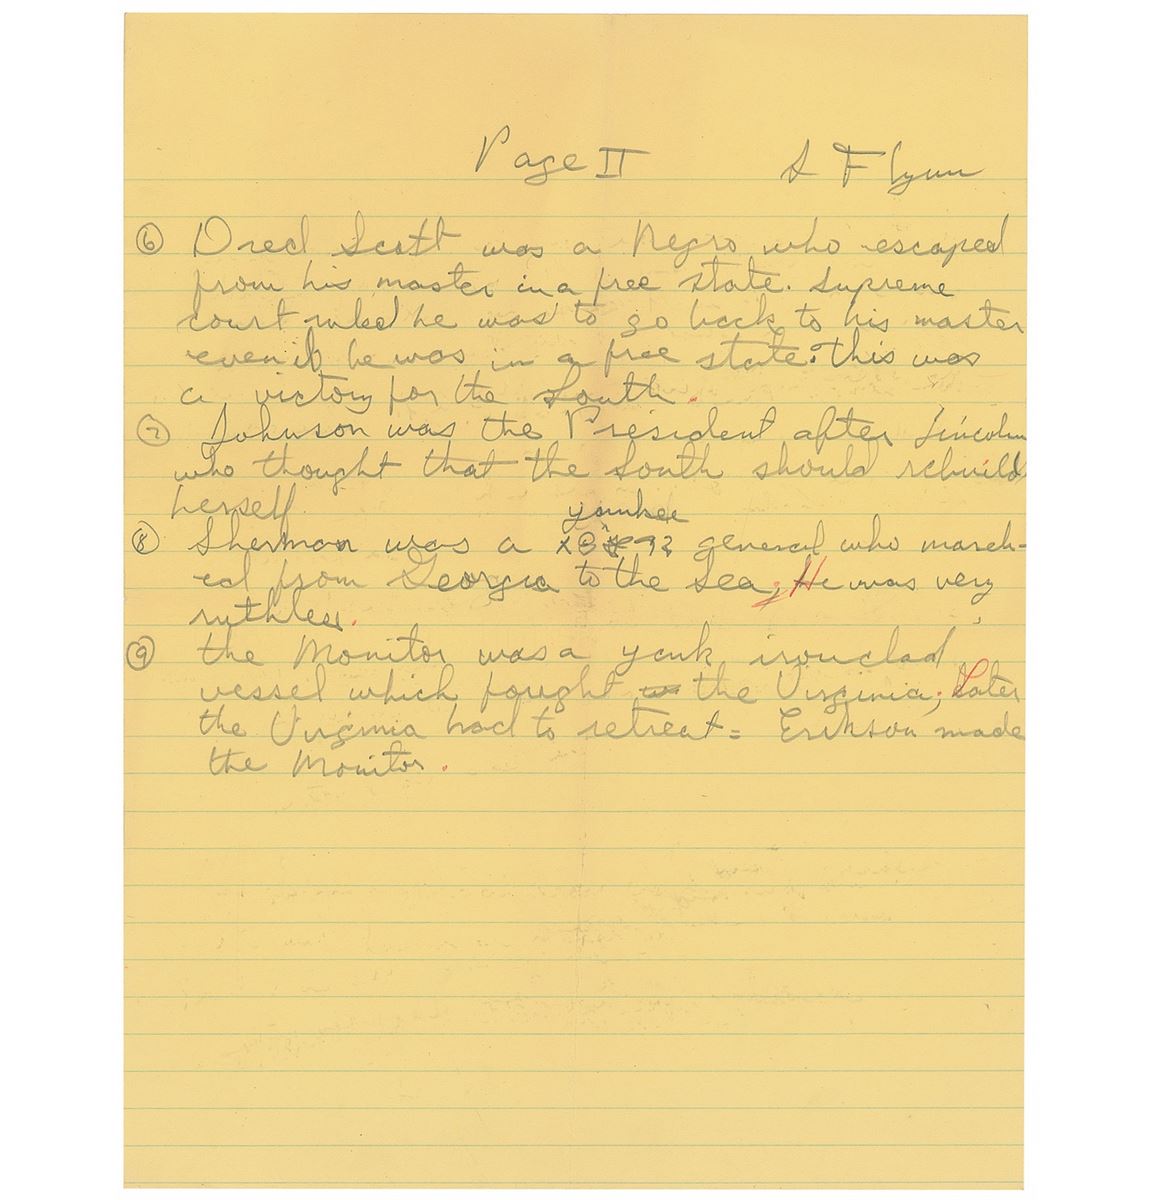 Page II S Flynn
⑥ Dred Scott was a Negro who escaped
from his master in a free state. Supreme
court ruled he was to go back to his master
even if he was in a free state. this was
a victory for the South.
⑦ Johnson was the President after Lincoln
who thought that the South should rebuild
herself
yankee
⑧ Sherman was a general who march-
ed from Georgia to the Sea; He was very
ruthless.
⑨ the Monitor was a yank ironclad
vessel which fought the Virginia; Later
the Virginia had to retreat = Erikson made
the Monitor.